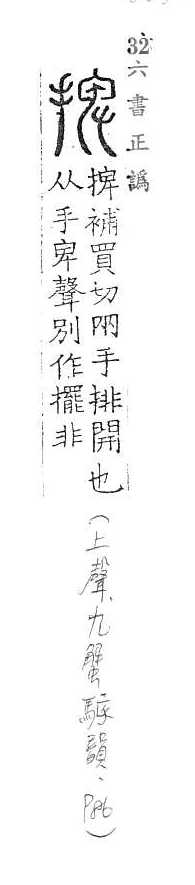 32六書正譌
捭
捭補買切㒳手排開也
从手卑聲別作擺非
(上聲、九蟹駭韻、P86)